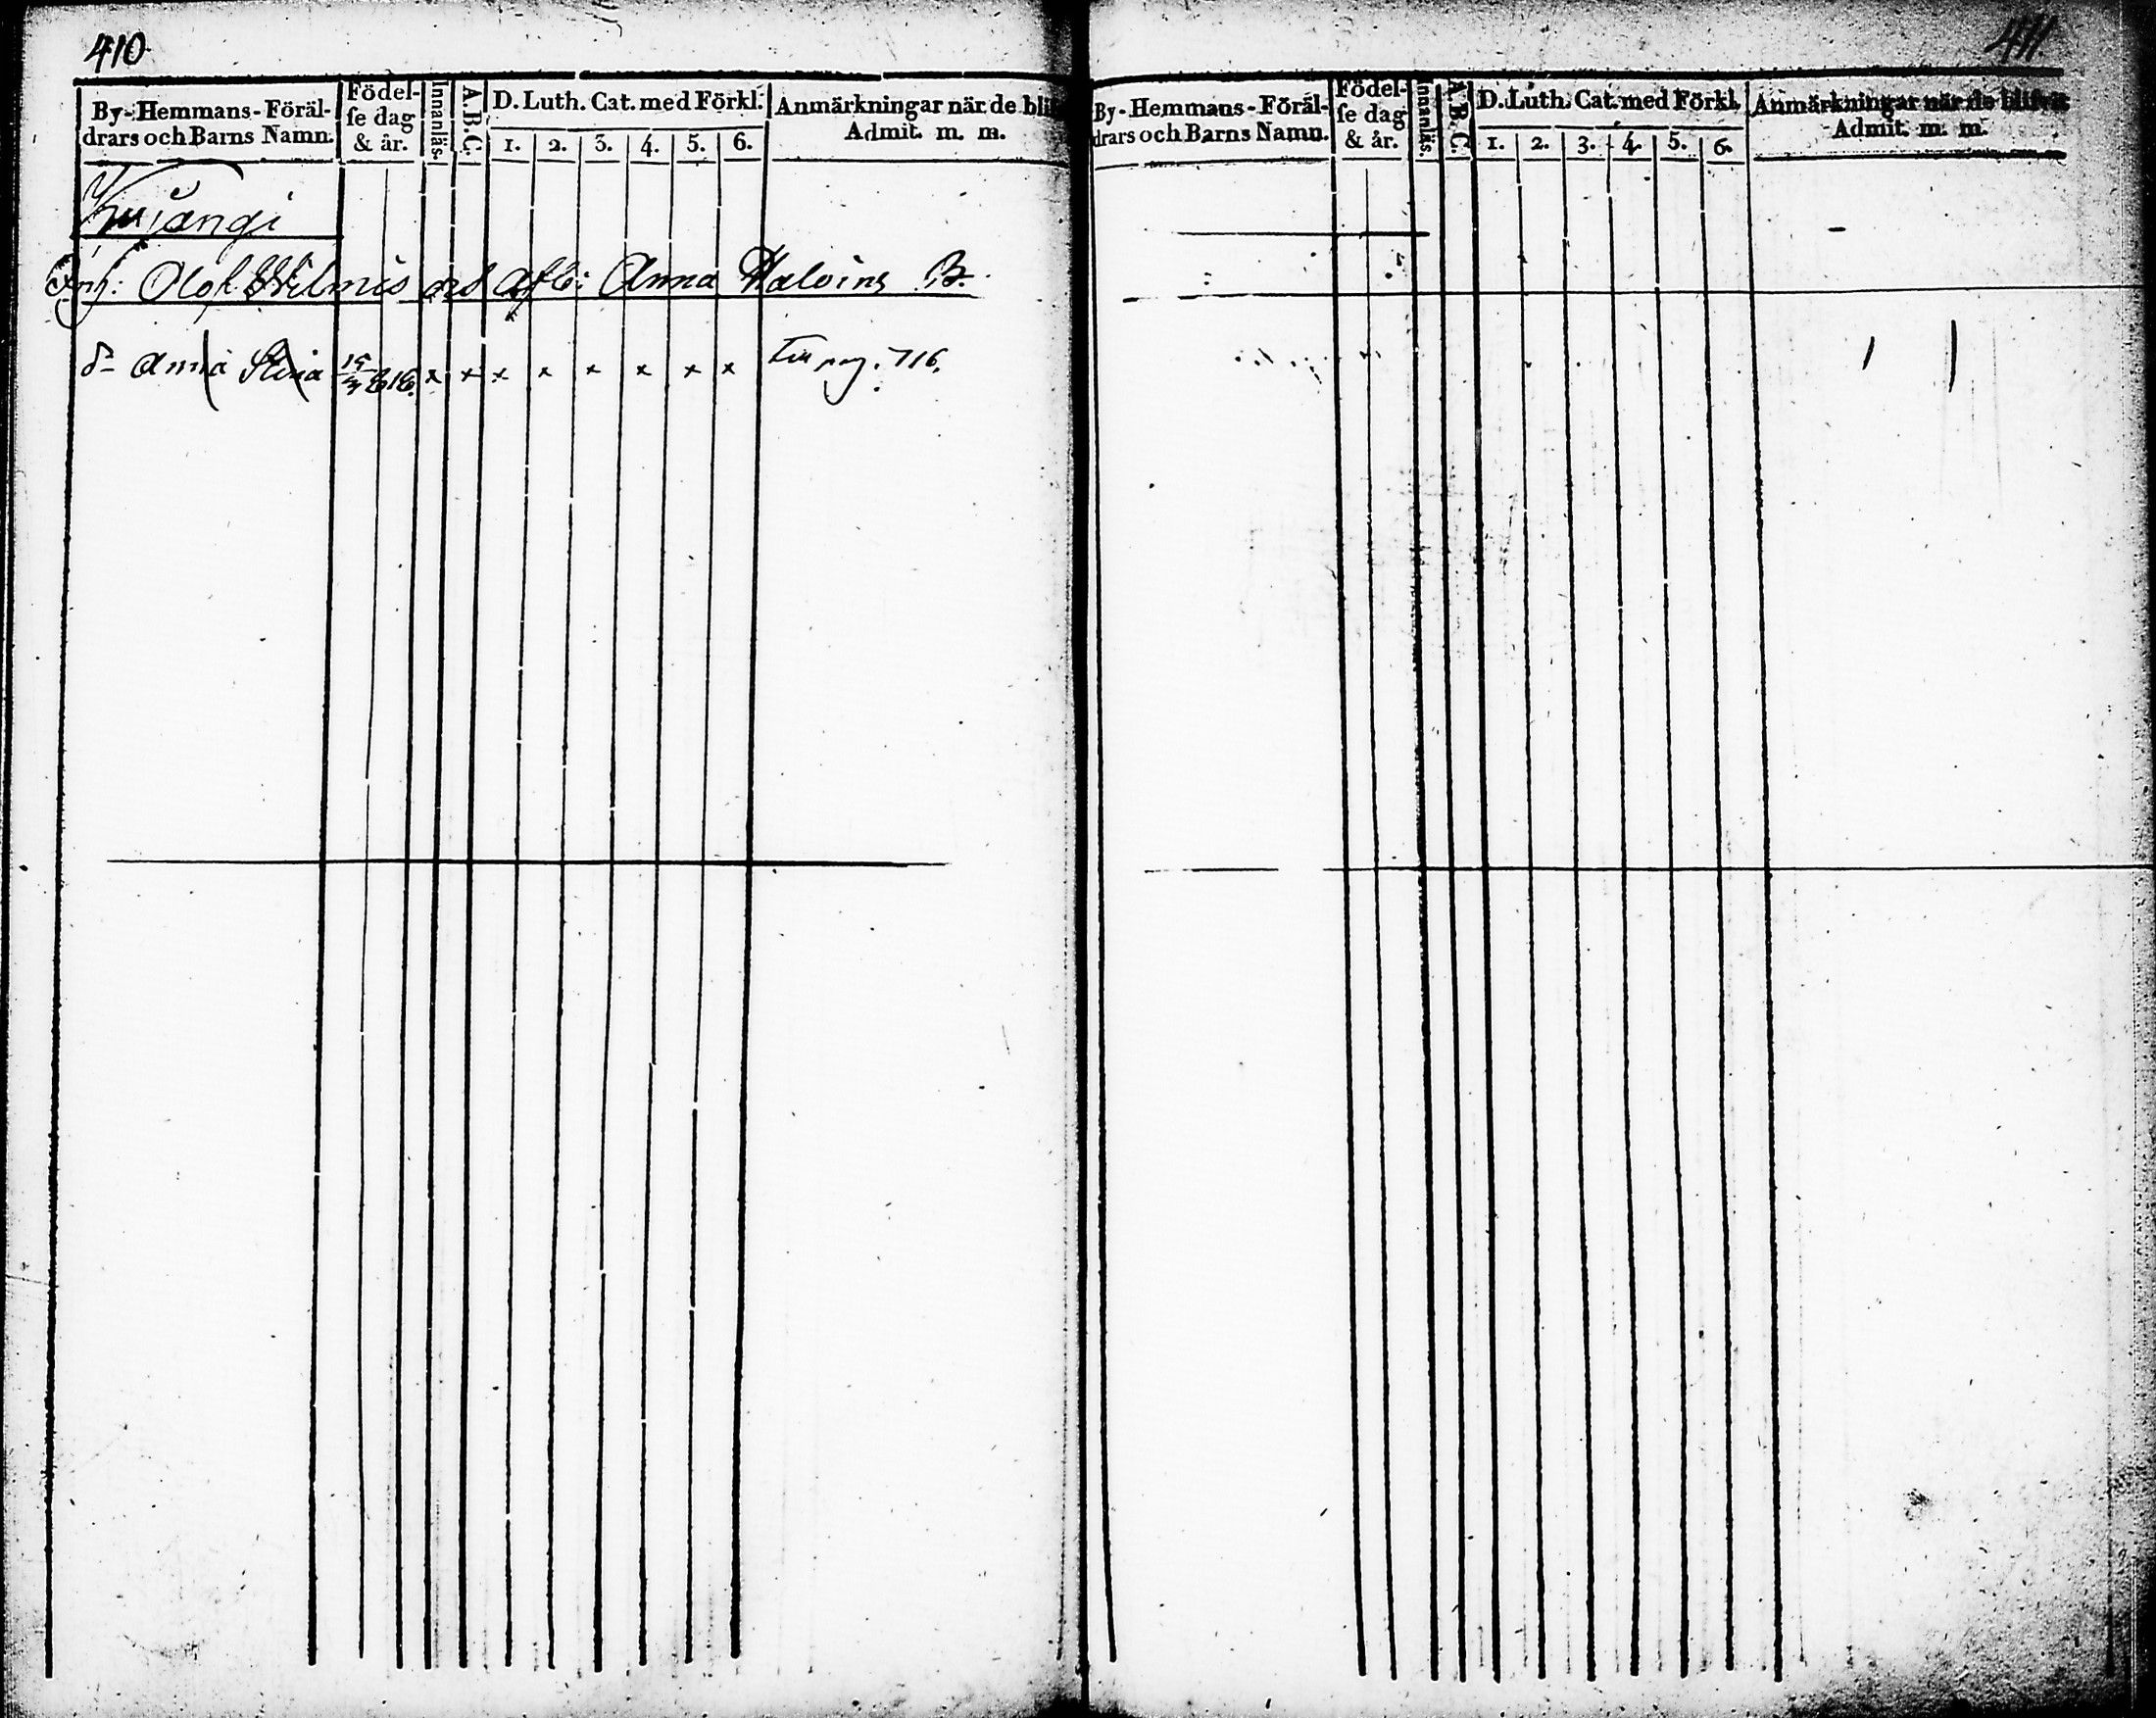 410
By-Hemmans-Föräl-
drars och Barns Namn.
Födel-
se dag
& år.
Innanläs.
A.B.C.
D. Luth. Cat. med Förkl.
1. 2. 3. 4. 5. 6.
Anmärkningar när de bli
Admit. m. m.
Inh: Olof och Afl: Anna B.
dr Anna Stina 1818. x x x x x x x x Till pag. 716.
411
By-Hemmans-Föräl-
drars och Barns Namn.
Födel-
se dag
& år.
Innanläs.
A.B.C.
D. Luth. Cat. med Förkl.
1. 2. 3. 4. 5. 6.
Anmärkningar när de blifvit
Admit. m. m.